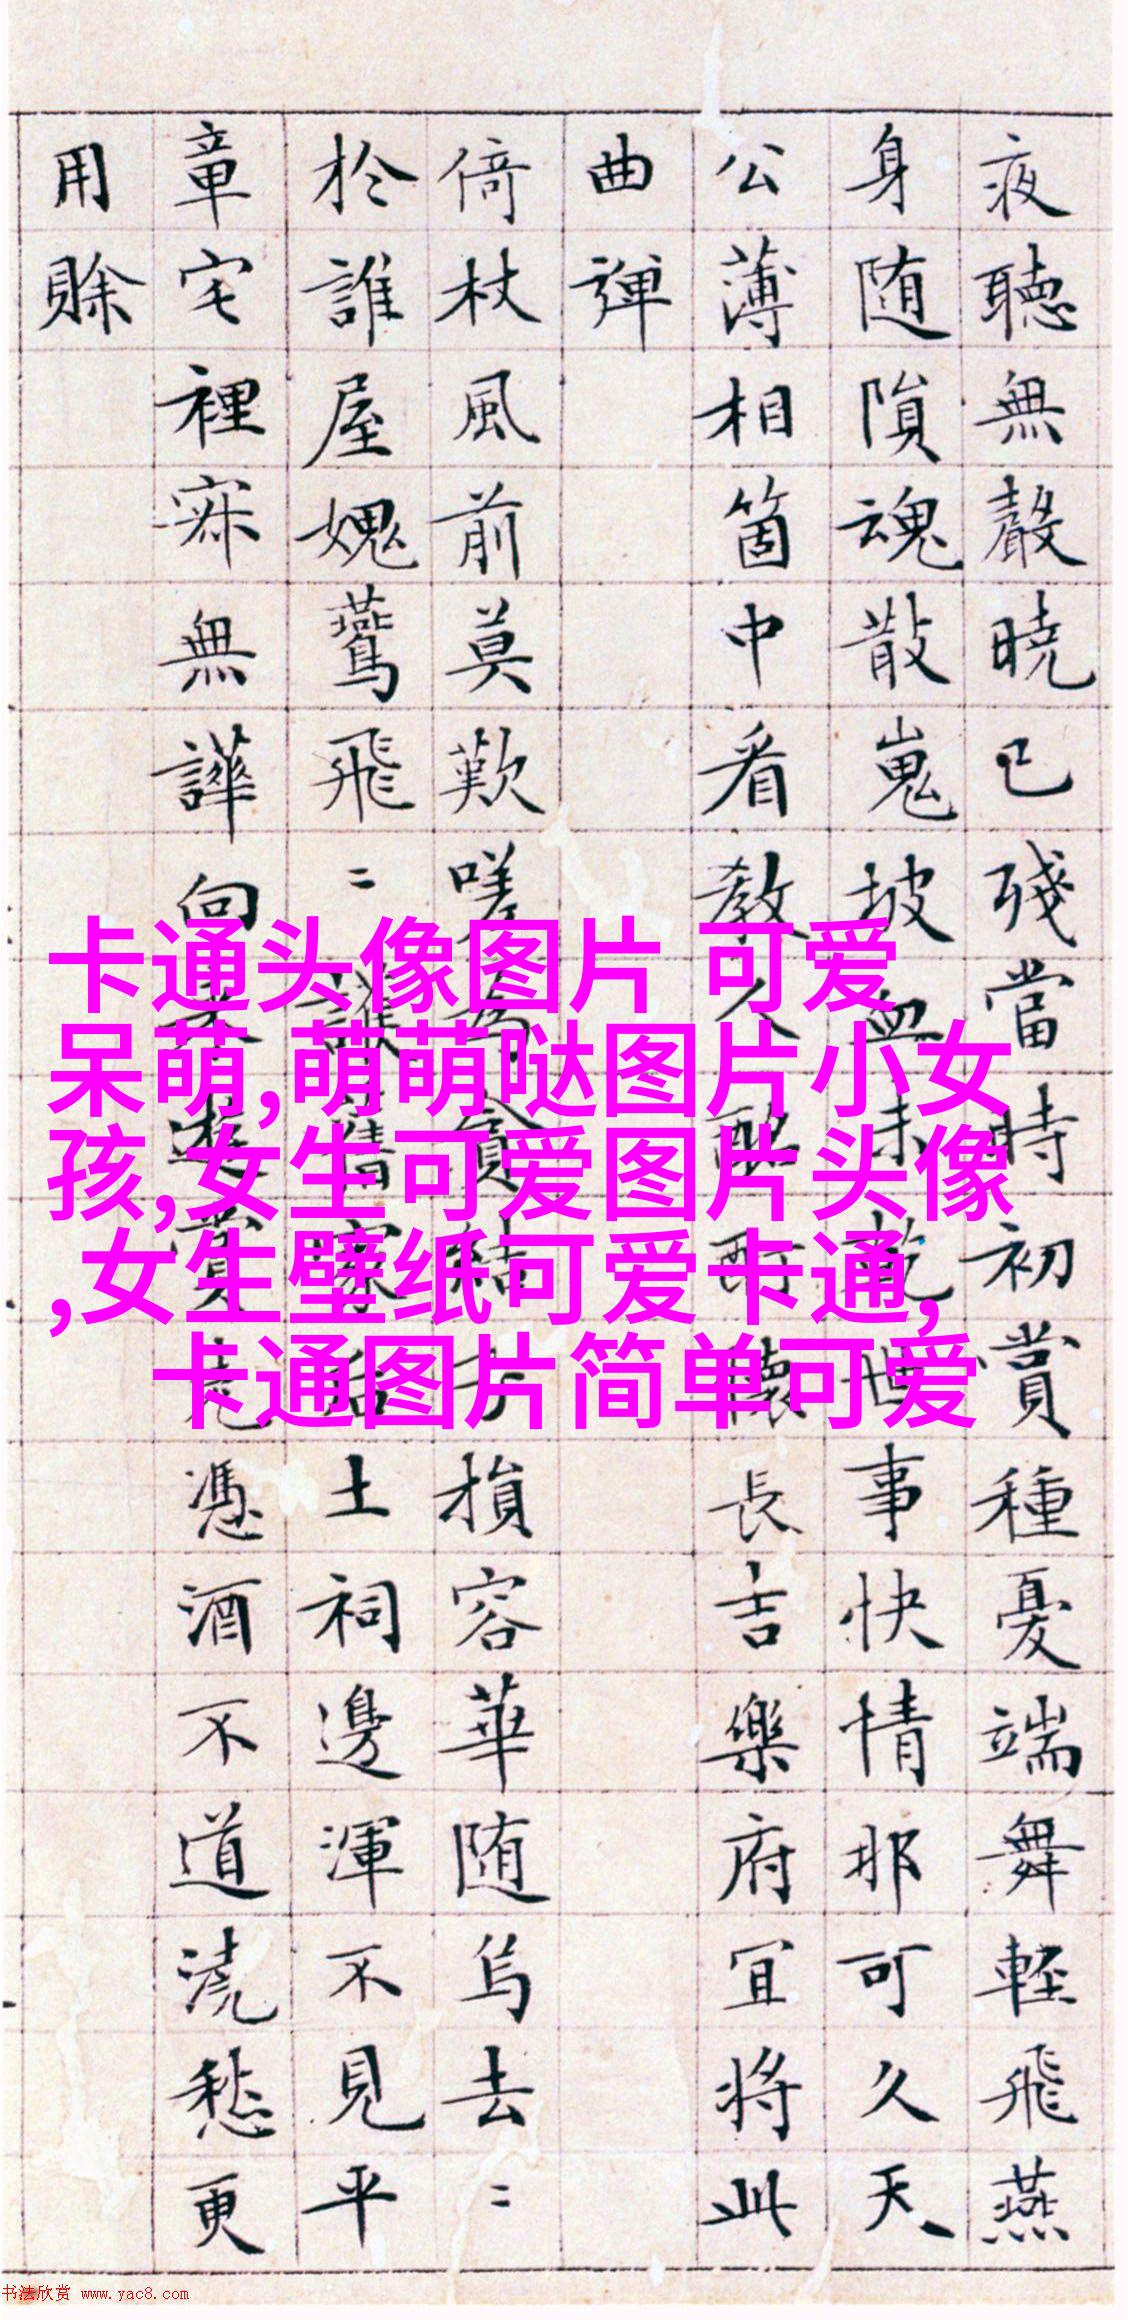 夜聽無聲曉已殘當時初賞種憂端舞輕飛燕
身随隕魂散嵬坡血未乾世事快情那可久天
公薄相箇中看教人酩酊懷長吉樂府宜將此
曲彈
倚杖風前莫歎嗟為貪結子損容華随烏去〻
於誰屋媿鶯飛〻誰舊家后土祠邊渾不見平
章宅裡寐無譁向來遊賞先憑酒不道澆愁更
用賒
卡通头像图片 可爱
呆萌,萌萌哒图片小女
孩,女生可爱图片头像
,女生壁纸可爱卡通,
卡通图片简单可爱
书法欣赏 www.yac8.com